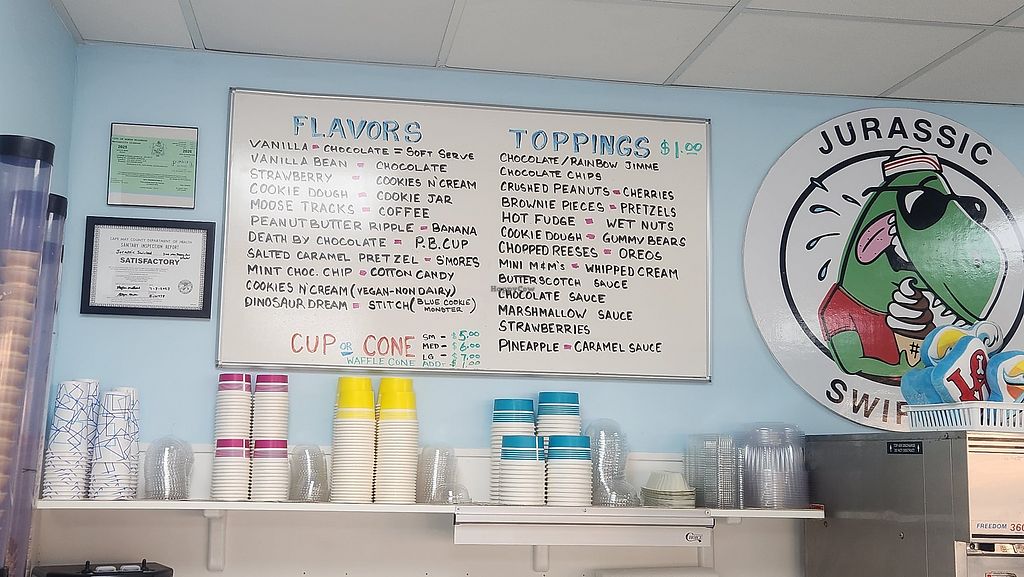 FLAVORS
VANILLA = CHOCOLATE = SOFT SERVE
VANILLA BEAN = CHOCOLATE
STRAWBERRY = COOKIES N' CREAM
COOKIE DOUGH = COOKIE JAR
MOOSE TRACKS = COFFEE
PEANUT BUTTER RIPPLE = BANANA
DEATH BY CHOCOLATE = P.B. CUP
SALTED CARAMEL PRETZEL = SMORES
MINT CHOC. CHIP = COTTON CANDY
COOKIES N' CREAM (VEGAN-NON DAIRY)
DINOSAUR DREAM = STITCH (BLUE COOKIE MONSTER)
CUP OR CONE
WAFFLE CONE ADD: $1.00
SM - $5.00
MED - $6.00
LG - $7.00
TOPPINGS $1.00
CHOCOLATE/RAINBOW JIMME
CHOCOLATE CHIPS
CRUSHED PEANUTS = CHERRIES
BROWNIE PIECES = PRETZELS
HOT FUDGE = WET NUTS
COOKIE DOUGH = GUMMY BEARS
CHOPPED REESES = OREOS
MINI M&M'S = WHIPPED CREAM
BUTTERSCOTCH SAUCE
CHOCOLATE SAUCE
MARSHMALLOW SAUCE
STRAWBERRIES
PINEAPPLE = CARAMEL SAUCE
JURASSIC
SWIR
CAPE MAY COUNTY DEPARTMENT OF HEALTH
SANITARY INSPECTION REPORT
SATISFACTORY
HappyCow
FREEDOM 360